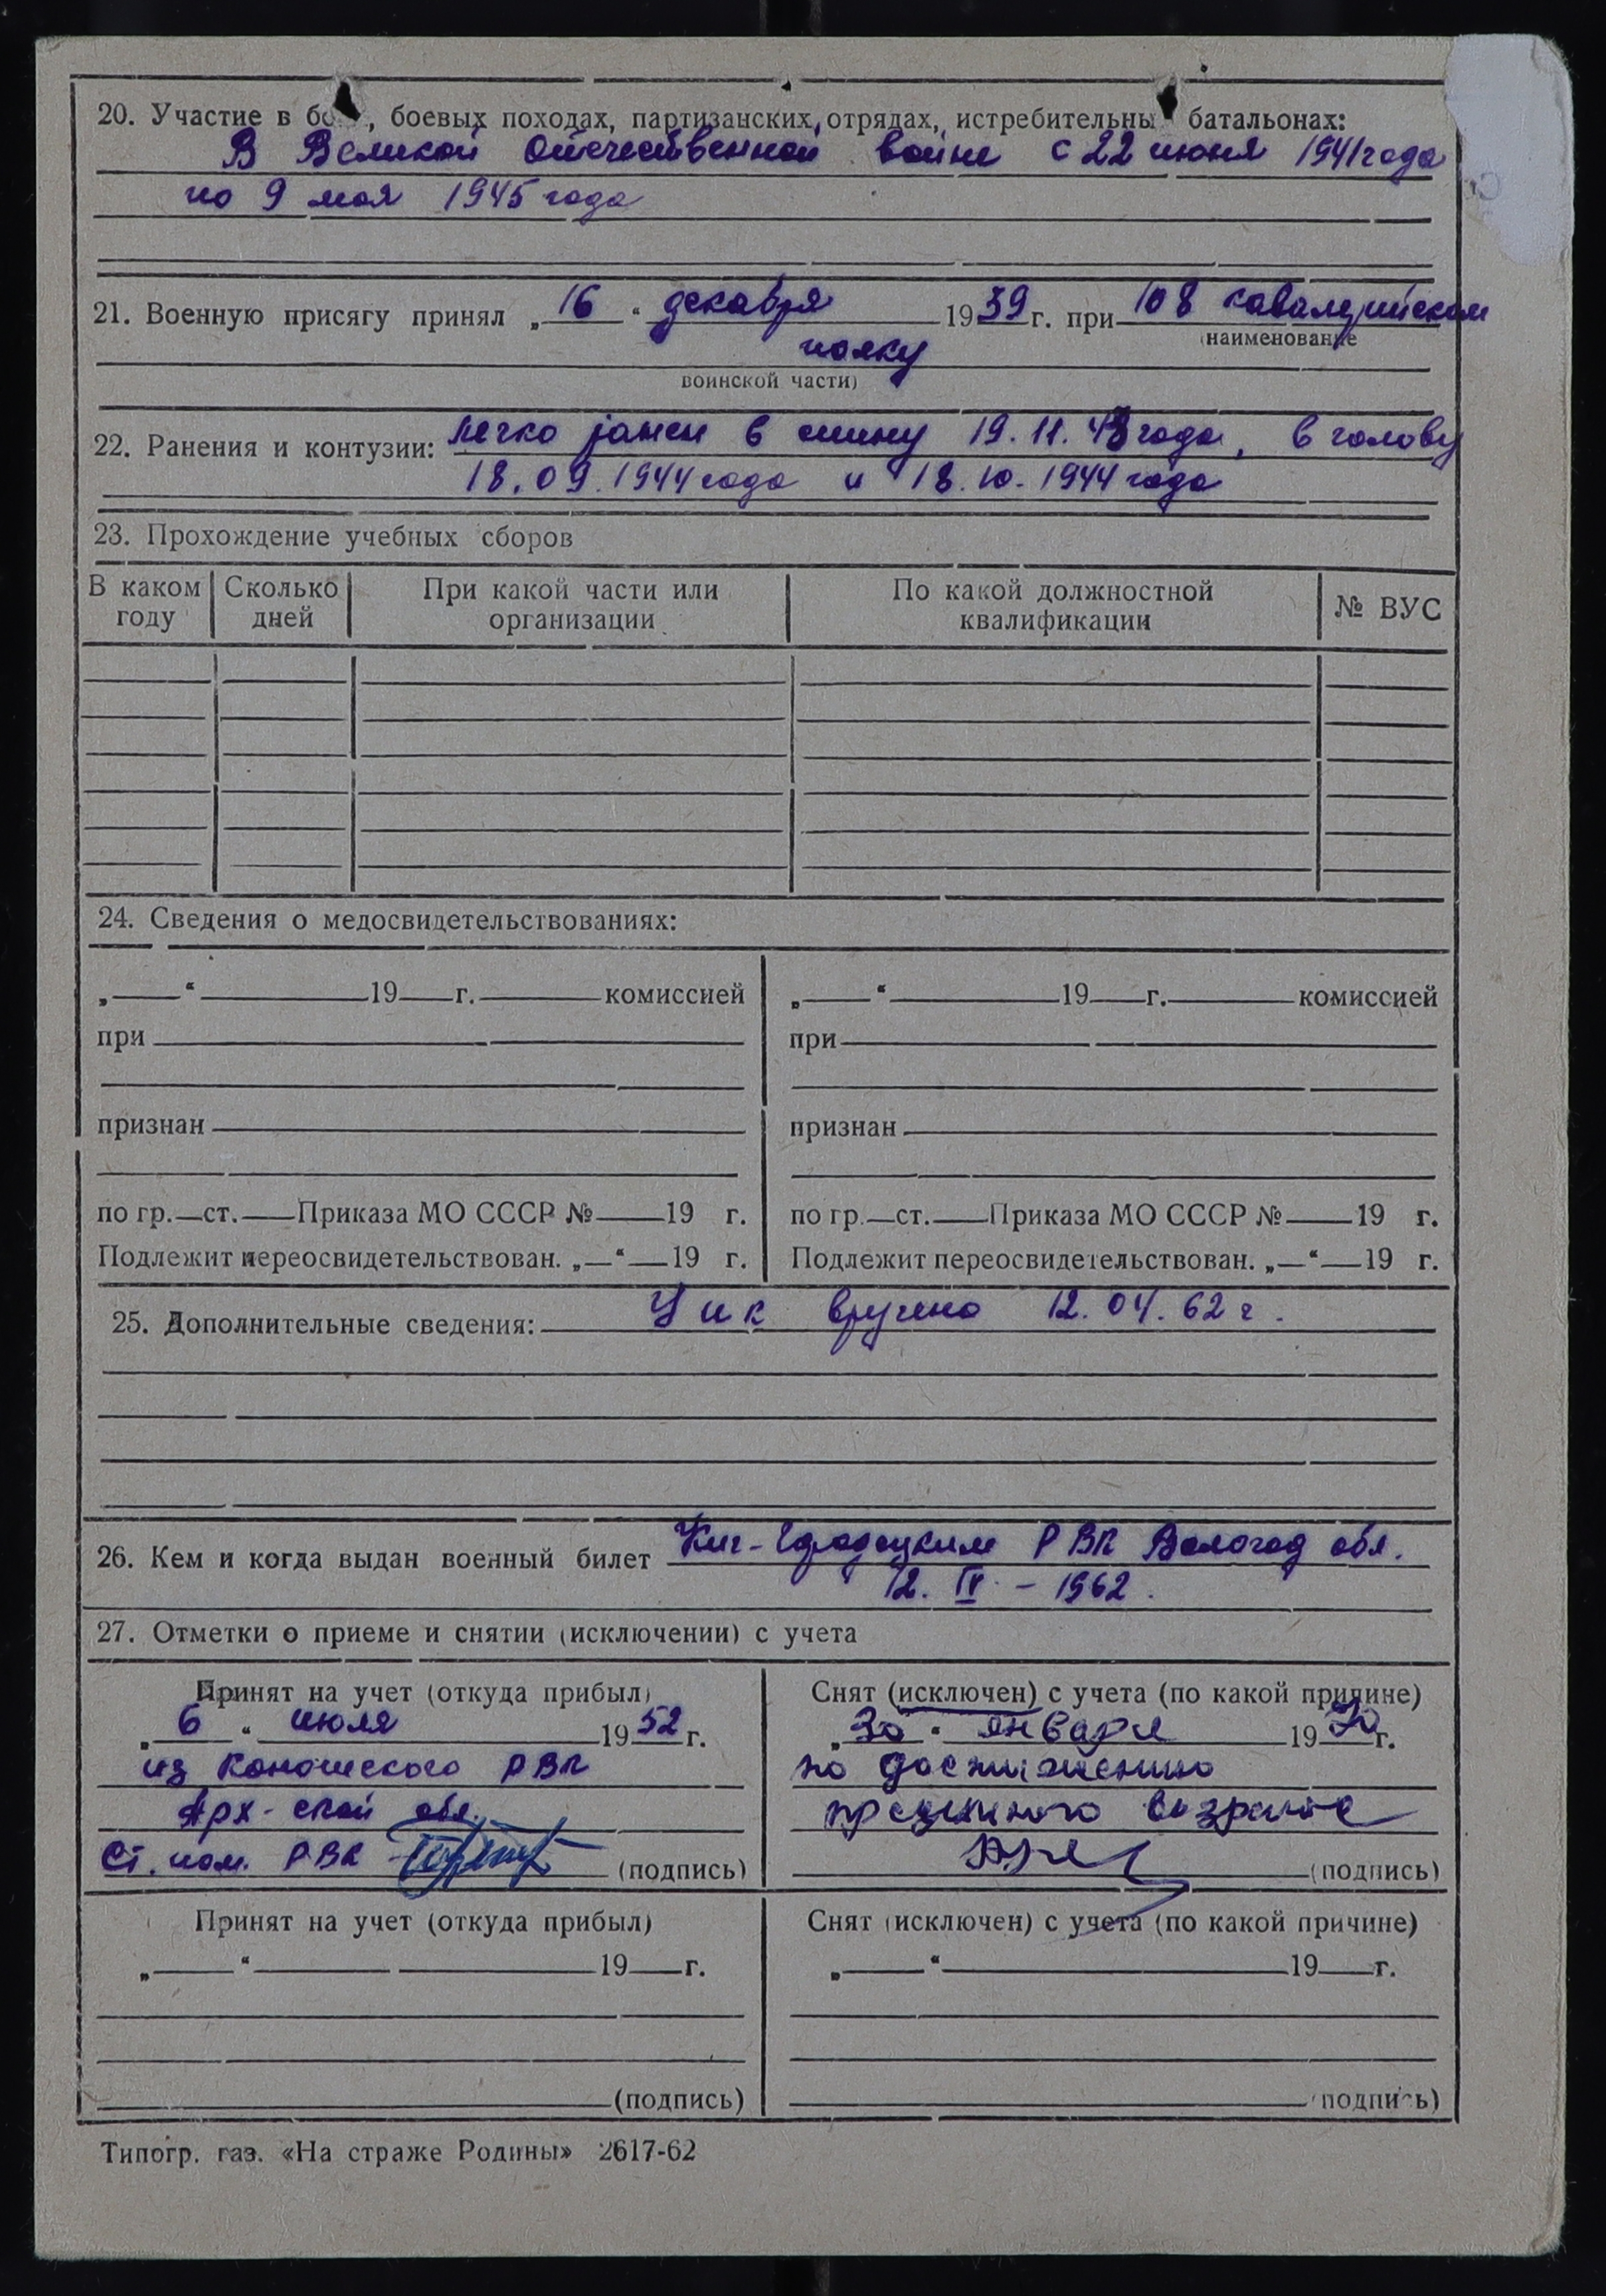 20. Участие в бо , боевых походах, партизанских отрядах, истребительны батальонах:
В Великой Отечественной войне с 22 июня 1941 года
по 9 мая 1945 года
21. Военную присягу принял „ 16 “ декабря 1939 г. при 108 кавалерийском
(наименование
полку
воинской части)
22. Ранения и контузии: легко ранен в спину 19.11.43 года, в голову
18.09.1944 года и 18.10.1944 года
23. Прохождение учебных сборов
В каком году Сколько дней При какой части или организации По какой должностной квалификации № ВУС
24. Сведения о медосвидетельствованиях:
„ “ 19 г. комиссией „ “ 19 г. комиссией
при при
признан признан
по гр. ст. Приказа МО СССР № 19 г. по гр. ст. Приказа МО СССР № 19 г.
Подлежит переосвидетельствован. „ “ 19 г. Подлежит переосвидетельствован. „ “ 19 г.
25. Дополнительные сведения: У и к вручено 12.04.62 г.
26. Кем и когда выдан военный билет Кич-Городецким РВК Вологод обл.
12. IV - 1962.
27. Отметки о приеме и снятии (исключении) с учета
Принят на учет (откуда прибыл) Снят (исключен) с учета (по какой причине)
„ 6 “ июля 1952 г. „ 30 “ января 1970 г.
из Коношского РВК по достижению
Арх-ской обл. предельного возраста
Ст. пом. РВК (подпись) (подпись)
Принят на учет (откуда прибыл) Снят (исключен) с учета (по какой причине)
„ “ 19 г. „ “ 19 г.
(подпись) (подпись)
Типогр. газ. «На страже Родины» 2617-62